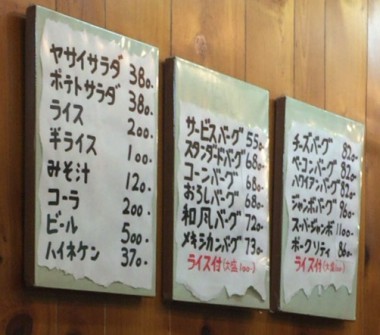 ヤサイサラダ 380-
ポテトサラダ 380-
ライス 200-
半ライス 100-
みそ汁 120-
コーラ 200-
ビール 500-
ハイネケン 370-
サービスバーグ 550-
スタンダードバーグ 680-
コーンバーグ 680-
おろしバーグ 680-
和風バーグ 720-
メキシカンバーグ 730-
ライス付(大盛100-)
チーズバーグ 820-
ベーコンバーグ 820-
ハワイアンバーグ 820-
ジャンボバーグ 960-
スーパージャンボ 1100-
ポークソティ 860-
ライス付(大盛100-)